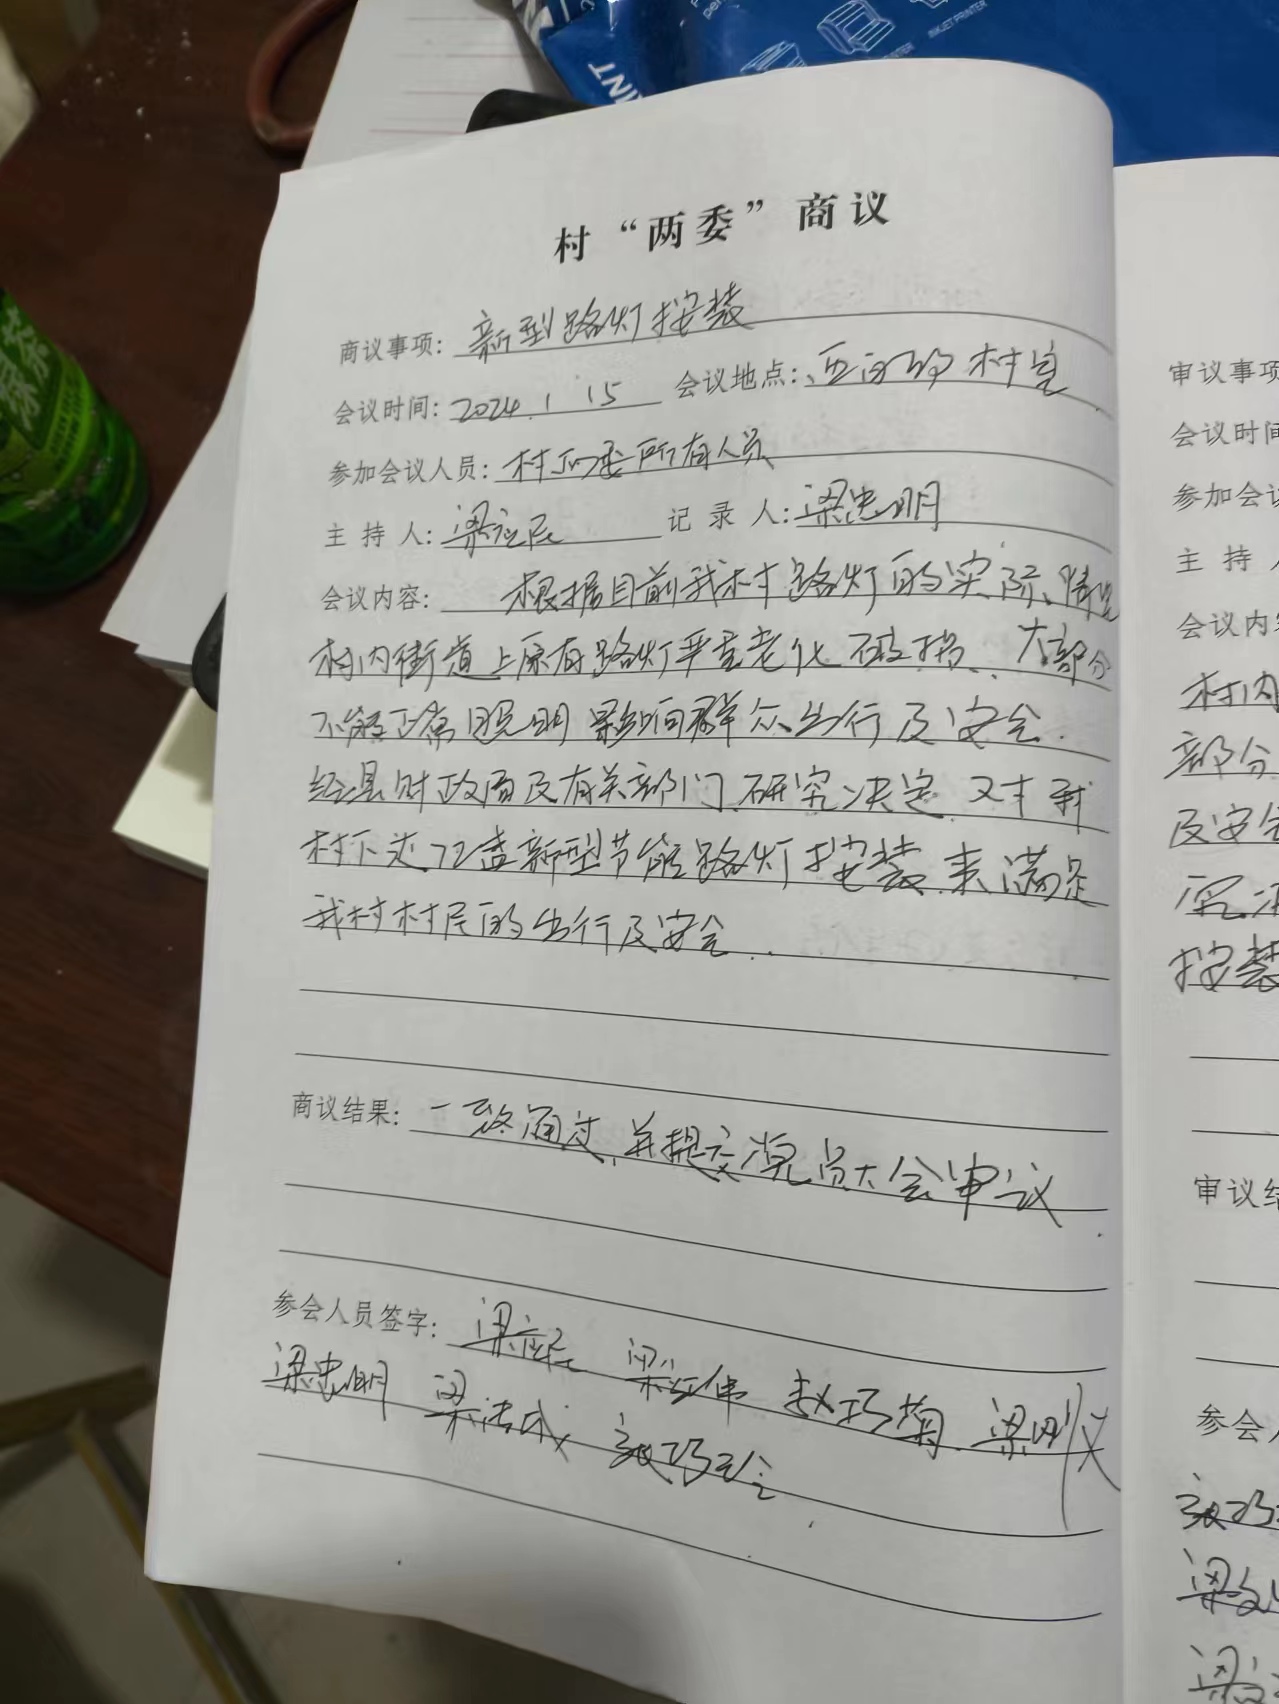 INKJET PRINTER
绿茶
村“两委”商议
商议事项：新型路灯按装
会议时间：2024.1 15 会议地点：西 村室
参加会议人员：村两委所有人员
主持人：梁应民 记录人：梁忠明
会议内容：根据目前我村路灯的实际情况
村内街道上原有路灯严重老化破损、大部分
不能正常照明影响群众出行及安全.
经县财政局及有关部门研究决定 对我
村下达72盏新型节能路灯按装.来满足
我村村民的出行及安全..
商议结果：一致通过,并提交党员大会审议.
参会人员签字：梁应民 梁红伟 赵巧菊 梁刚义
梁忠明 梁洁成
审议事项
会议时间
参加会议
主持人
会议内容
村内
部分
及安全
究决
按装
审议结
参会人